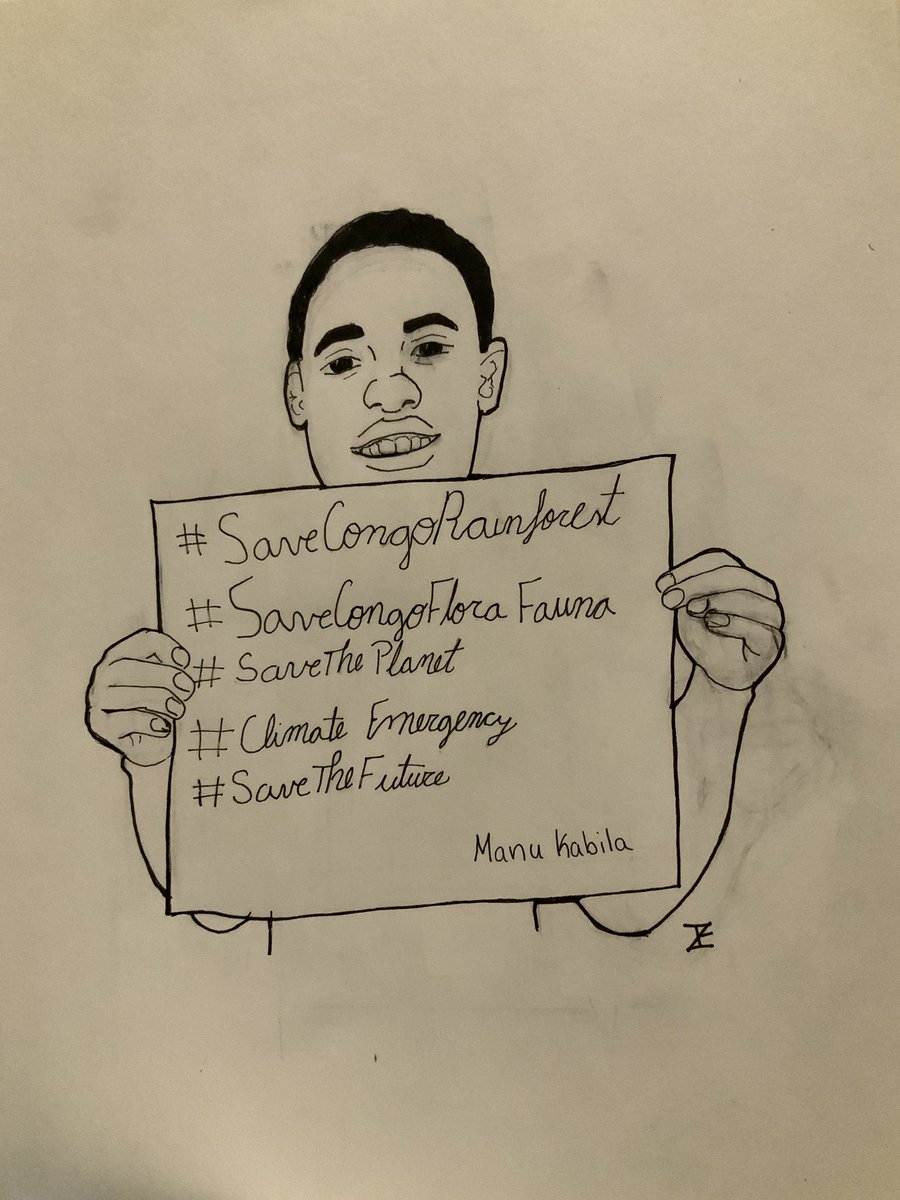 # SaveCongoRainforest
# SaveCongoFlora Fauna
# SaveThePlanet
# Climate Emergency
# SaveTheFuture
Manu Kabila